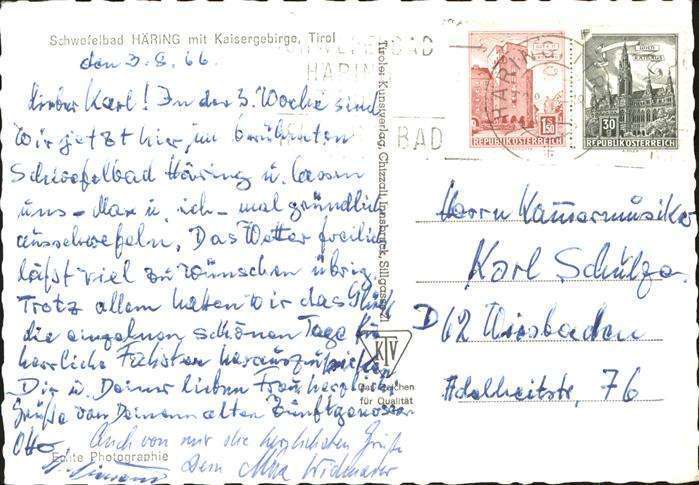 Schwefelbad HÄRING mit Kaisergebirge, Tirol
den 3. 8. 66.
Lieber Karl! In der 3. Woche sind
wir jetzt hier, im berühmten
Schwefelbad Häring u. lassen
uns – Max u. ich – mal gründlich
ausschwefeln. Das Wetter freilich
läßt viel zu wünschen übrig.
Trotz allem hatten wir das Glück
die einzelnen schönen Tage für
herrliche Fahrten herauszufischen
Dir u. Deiner lieben Frau herzliche
Grüße von Deinem alten Zunftgenossen
Otto
Auch von mir die herzlichsten Grüße
Dein Max
Echte Photographie
Tiroler Kunstverlag, Chizzali, Innsbruck, Sillgasse 21
KTV
Das Zeichen
für Qualität
HÄRING
BAD
1.50
REPUBLIK ÖSTERREICH
WIEN
RATHAUS
30
REPUBLIK ÖSTERREICH
Herrn Kammermusiker
Karl Schulze
D 62 Wiesbaden
Adelheitstr. 76